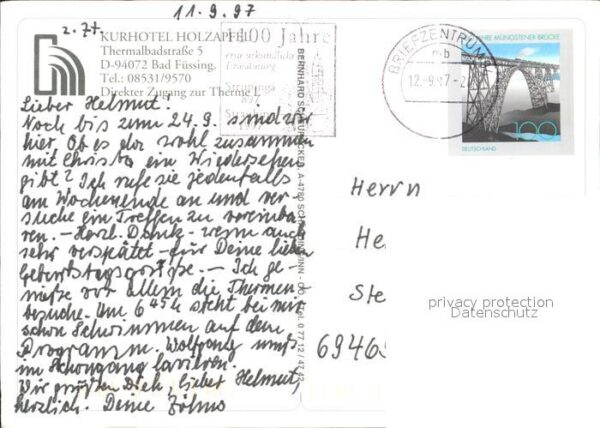 11.9.97
z. Zt.
KURHOTEL HOLZAPFEL
Thermalbadstraße 5
D-94072 Bad Füssing.
Tel.: 08531/9570
Direkter Zugang zur Therme I
1100 Jahre
erste urkundliche
Erwähnung
897
BRIEFZENTRUM
mb
12.-9.97-2
JAHRE MÜNGSTENER BRÜCKE
100
DEUTSCHLAND
Lieber Helmut!
Noch bis zum 24.9. sind wir
hier. Ob es da wohl zusammen
mit Christa ein Wiedersehen
gibt? Ich rufe sie jedenfalls
am Wochenende an und ver-
suche ein Treffen zu vereinba-
ren. – Herzl. Dank – wenn auch
sehr verspätet – für Deine lieben
Geburtstagsgrüße. – Ich ge-
nieße vor allem die Thermen-
besuche. Um 6 45h steht bei mir
schon Schwimmen auf dem
Programm. Wolfgang muß
im Schongang
Wir grüßen Dich, lieber Helmut,
herzlich. Deine
BERNHARD
A-4780
Tel. 0 77 12 / 47 42
Herrn
He
Ste
6946
privacy protection
Datenschutz